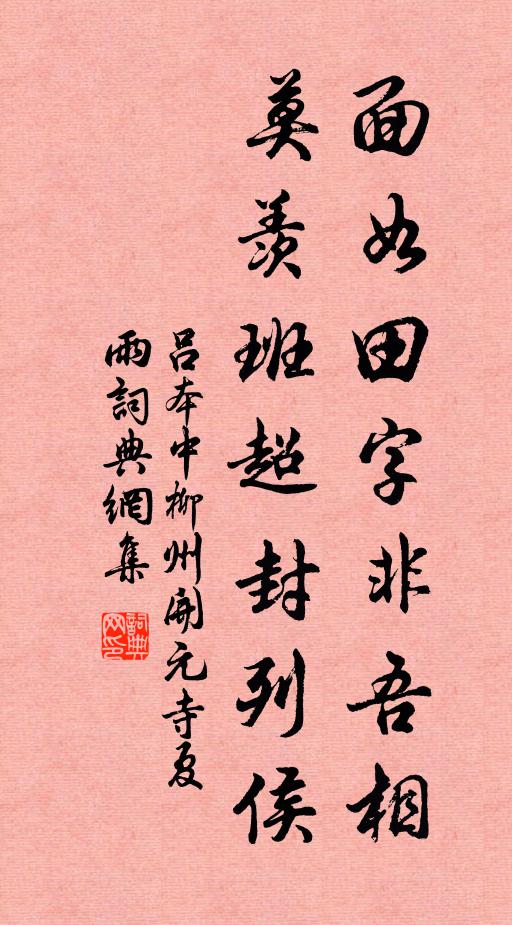 面如田字非吾相
莫羨班超封列侯
呂本中柳州開元寺夏
雨詞典網集
詞典
网印